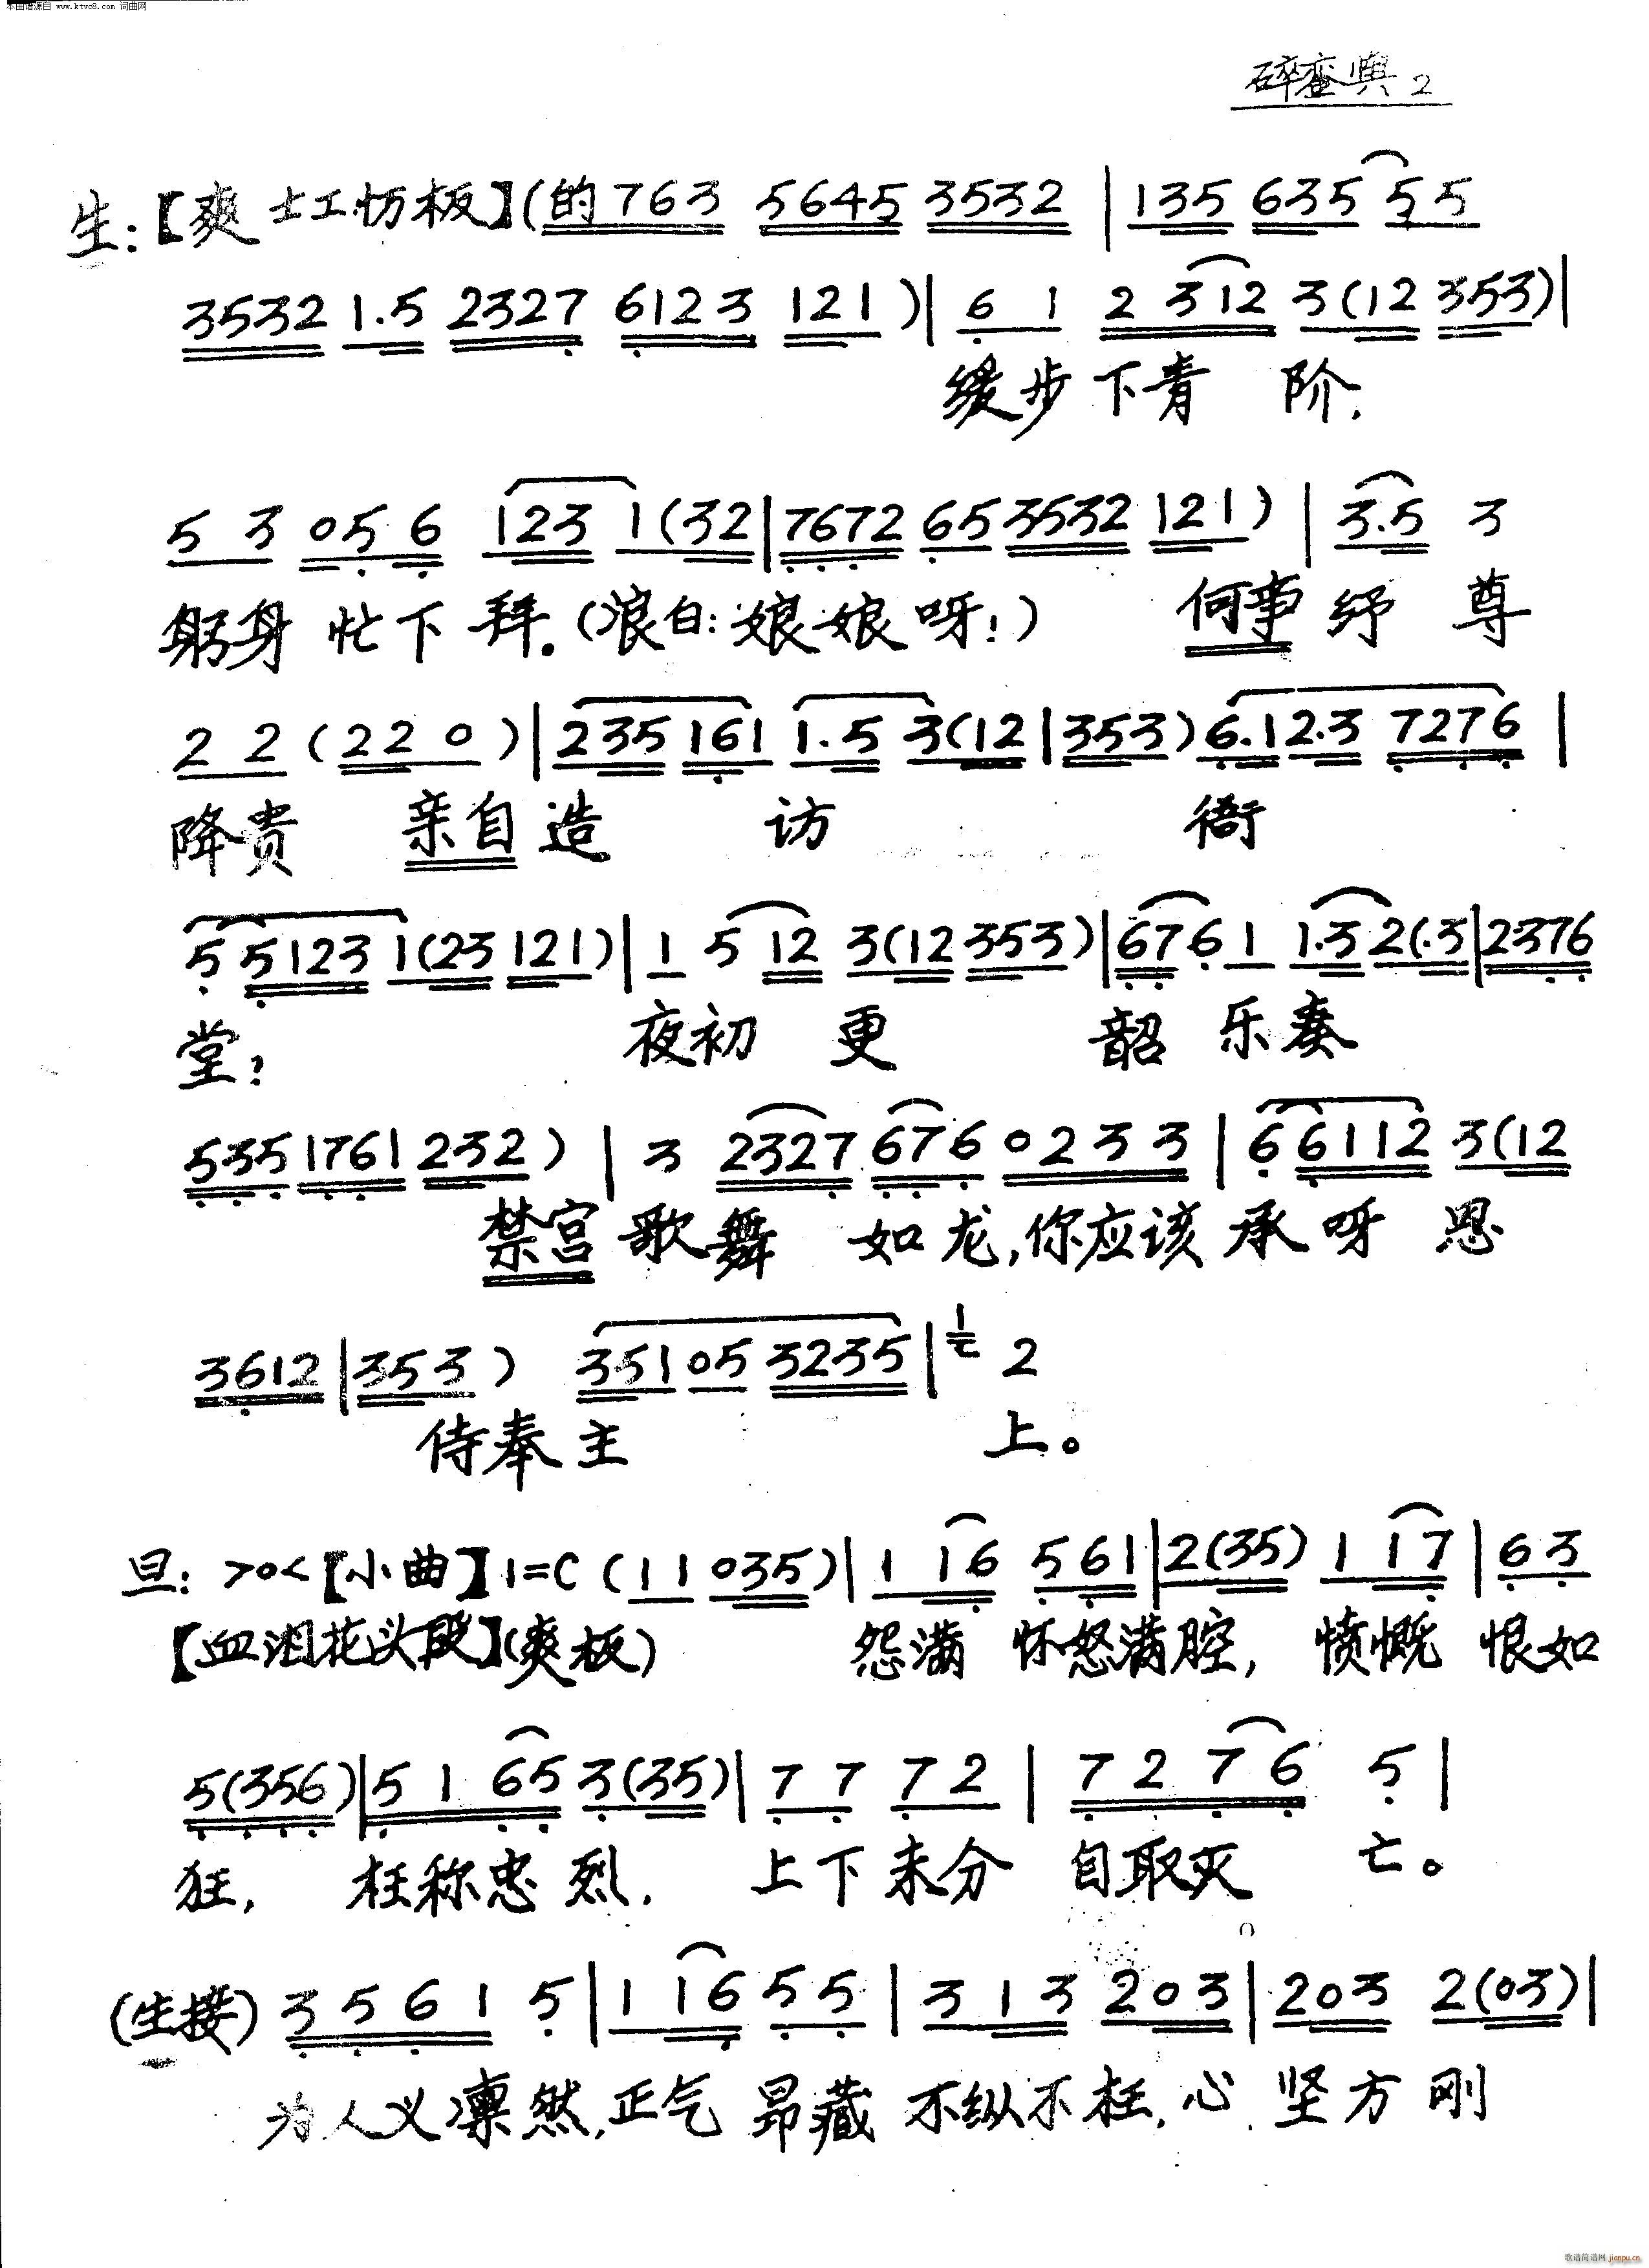 本曲谱源自 www.ktvc8.com 词曲网
碎銮舆 2
生:【爽 士工忉板】(的763 5645 3532 | 135 635 55
3532 1.5 2327 6123 121 )| 6 1 2 312 3(12 353)|
缓步下青 阶,
5 3 056 123 1(32|7672 65 3532 121) | 3.5 3
躬身 忙下 拜。(浪白:娘娘呀!) 何事 纾 尊
2 2 (22 0 )|235 161 1.5 3(12|353)6.12.3 7276 |
降贵 亲自造 访 衙
5 51231(23 121)|1 5 12 3(12 353)|6761 1.3 2(.3|2376
堂? 夜初 更 韶 乐奏
535 1761 232 ) | 3 2327 676 0233 | 66112 3(12
禁宫歌舞 如龙,你应该 承呀 恩
3612 |353 ) 35105 3235 | 2
侍奉主 上。
旦: >0<【小曲】1=C (11 035)|1 16 561|2(35) 1 17 |63
【血泪花头段】(爽板) 怨满 怀怒满腔, 愤慨 恨如
5(356)|5 1 65 3(35)|7 7 72 | 72 76 5 |
狂, 枉称忠 烈, 上下未分 自取灭 亡。
(生接) 3 5 6 1 5 |1 16 55 | 3 13 203|203 2(03)|
为人义凛然,正气 昂藏 不纵不枉,心 坚方刚
歌谱简谱网 jianpu.cn